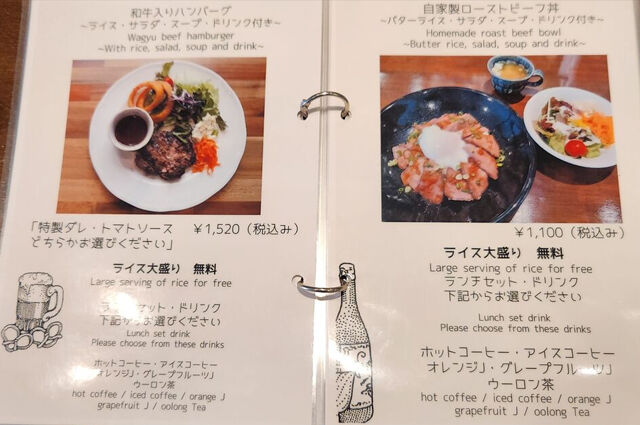 和牛入りハンバーグ
～ライス・サラダ・スープ・ドリンク付き～
Wagyu beef hamburger
~With rice, salad, soup and drink~
「特製ダレ・トマトソース
どちらかお選びください」
￥1,520（税込み）
ライス大盛り 無料
Large serving of rice for free
ランチセット・ドリンク
下記からお選びください
Lunch set drink
Please choose from these drinks
ホットコーヒー・アイスコーヒー
オレンジJ・グレープフルーツJ
ウーロン茶
hot coffee / iced coffee / orange J
grapefruit J / oolong Tea
自家製ローストビーフ丼
～バターライス・サラダ・スープ・ドリンク付き～
Homemade roast beef bowl
~Butter rice, salad, soup and drink~
￥1,100（税込み）
ライス大盛り 無料
Large serving of rice for free
ランチセット・ドリンク
下記からお選びください
Lunch set drink
Please choose from these drinks
ホットコーヒー・アイスコーヒー
オレンジJ・グレープフルーツJ
ウーロン茶
hot coffee / iced coffee / orange J
grapefruit J / oolong Tea